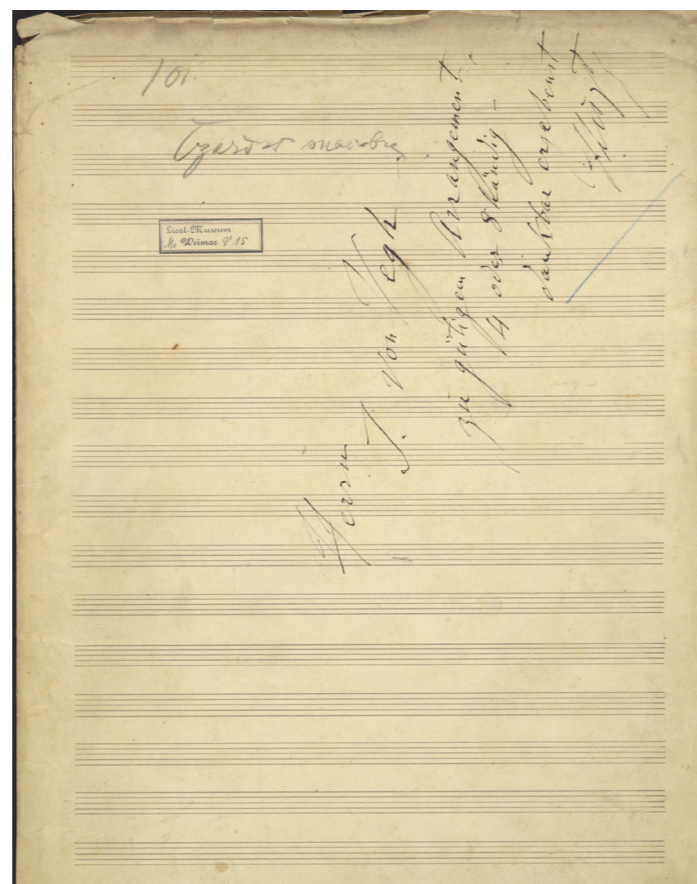 101.
Czardas macabre
Liszt-Museum
Ms Weimar V 15
Herrn
J. von Végh
zu gütigem Arrangement:
4 oder 8 händig –
dankbar ergebenst
FLiszt